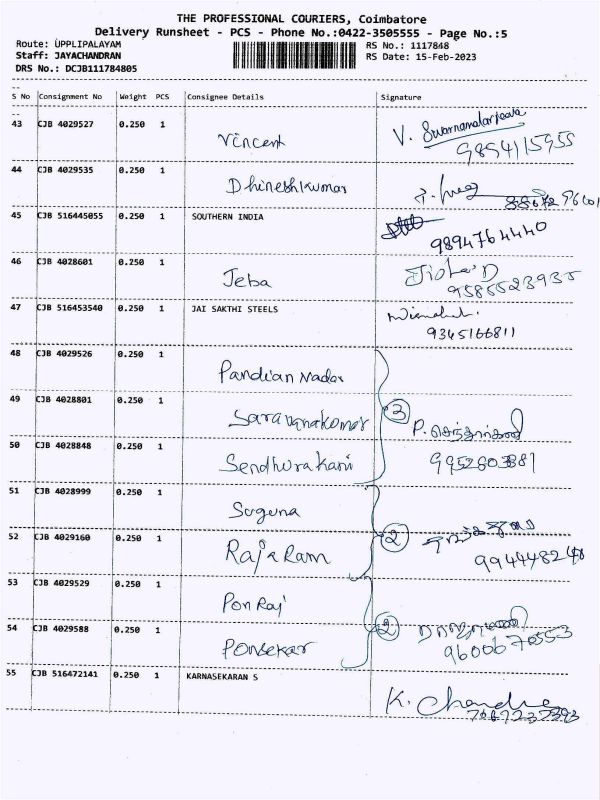 THE PROFESSIONAL COURIERS, Coimbatore
Delivery Runsheet - PCS - Phone No.:0422-3505555 - Page No.:5
Route: UPPLIPALAYAM RS No.: 1117848
Staff: JAYACHANDRAN RS Date: 15-Feb-2023
DRS No.: DCJB111784805
S No Consignment No Weight PCS Consignee Details Signature
43 CJB 4029527 0.250 1 Vincent V.
9894115955
44 CJB 4029535 0.250 1 Dhineshkumar
45 CJB 516445055 0.250 1 SOUTHERN INDIA
9894764440
46 CJB 4028601 0.250 1 Jeba
9585523935
47 CJB 516453540 0.250 1 JAI SAKTHI STEELS
9345166811
48 CJB 4029526 0.250 1 Pandian Nadar
49 CJB 4028801 0.250 1 Saravanakumar 3
50 CJB 4028848 0.250 1 Sendhurakani
51 CJB 4028999 0.250 1 Suguna
52 CJB 4029160 0.250 1 Raja Ram 2
53 CJB 4029529 0.250 1 Ponraj
54 CJB 4029588 0.250 1 Ponsekar 2
9600670553
55 CJB 516472141 0.250 1 KARNASEKARAN S K.